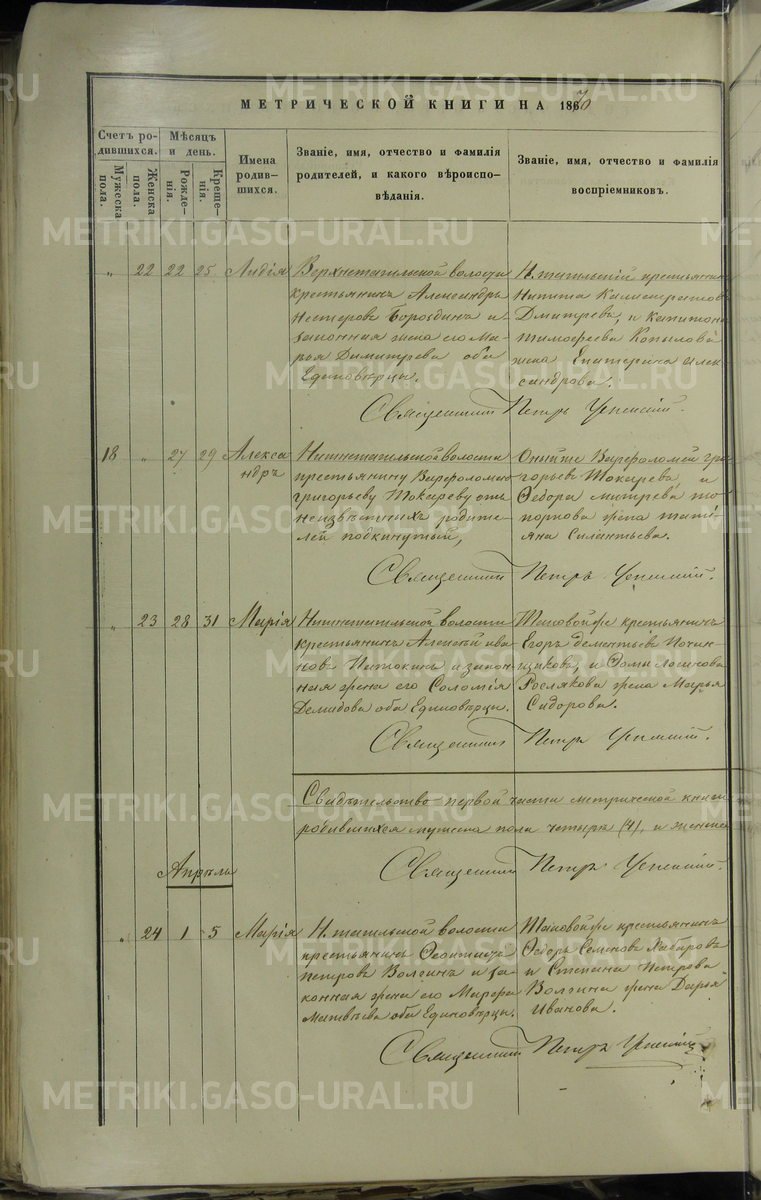 METRIKI.GASO-URAL.RU
МЕТРИЧЕСКОЙ КНИГИ НА 1870
Счетъ ро-
дившихся.
Мужеска
пола.
Женска
пола.
Мѣсяцъ
и день.
Рожде-
нія.
Креще-
нія.
Имена
родив-
шихся.
Званіе, имя, отчество и фамилія
родителей, и какого вѣроиспо-
вѣданія.
Званіе, имя, отчество и фамилія
воспріемниковъ.
„ 22 22 25 Лидія
Верхнетагильской волости
крестьянинъ Александръ
Нестеровъ Бороздинъ и
законная жена его Ма-
рья Димитрева оба
Единовѣрцы.
Н. тагильскій крестьянинъ
Никита Калистратовъ
Дмитревъ, и Капитона
Тимофеева Копылова
жена Екатерина Алек-
сандрова.
Священникъ Петръ Успенскій.
18 „ 27 29 Алекса
ндръ
Нижнетагильской волости
крестьянину Варфоломею
Григорьеву Токареву отъ
неизвѣстныхъ родите-
лей подкинутый,
Онъ же Варфоломей Гри
горьевъ Токаревъ, и
Ѳедора Митрева То-
поркова жена Тать-
яна Силантьева.
Священникъ Петръ Успенскій.
„ 23 28 31 Марія
Нижнетагильской волости
крестьянинъ Алексѣй Ива-
новъ и закон-
ная жена его Соломія
Демидова оба Единовѣрцы.
Таковой же крестьянинъ
Егоръ Дементьевъ Почин-
щиковъ, и
Рослякова жена Марья
Сидорова.
Священникъ Петръ Успенскій.
Свидѣтельство первой части метрической книги
родившихся мужска пола четыре (4), и женска
Священникъ Петръ Успенскій.
Апрѣль
„ 24 1 5 Марія
Н. тагильской волости
крестьянинъ
Петровъ Волгинъ и за-
конная жена его Марфа
Матвѣева оба Единовѣрцы.
Таковой же крестьянинъ
Ѳедоръ Семеновъ Хабаровъ
и Степана Петрова
Волгина жена Дарья
Иванова.
Священникъ Петръ Успенскій